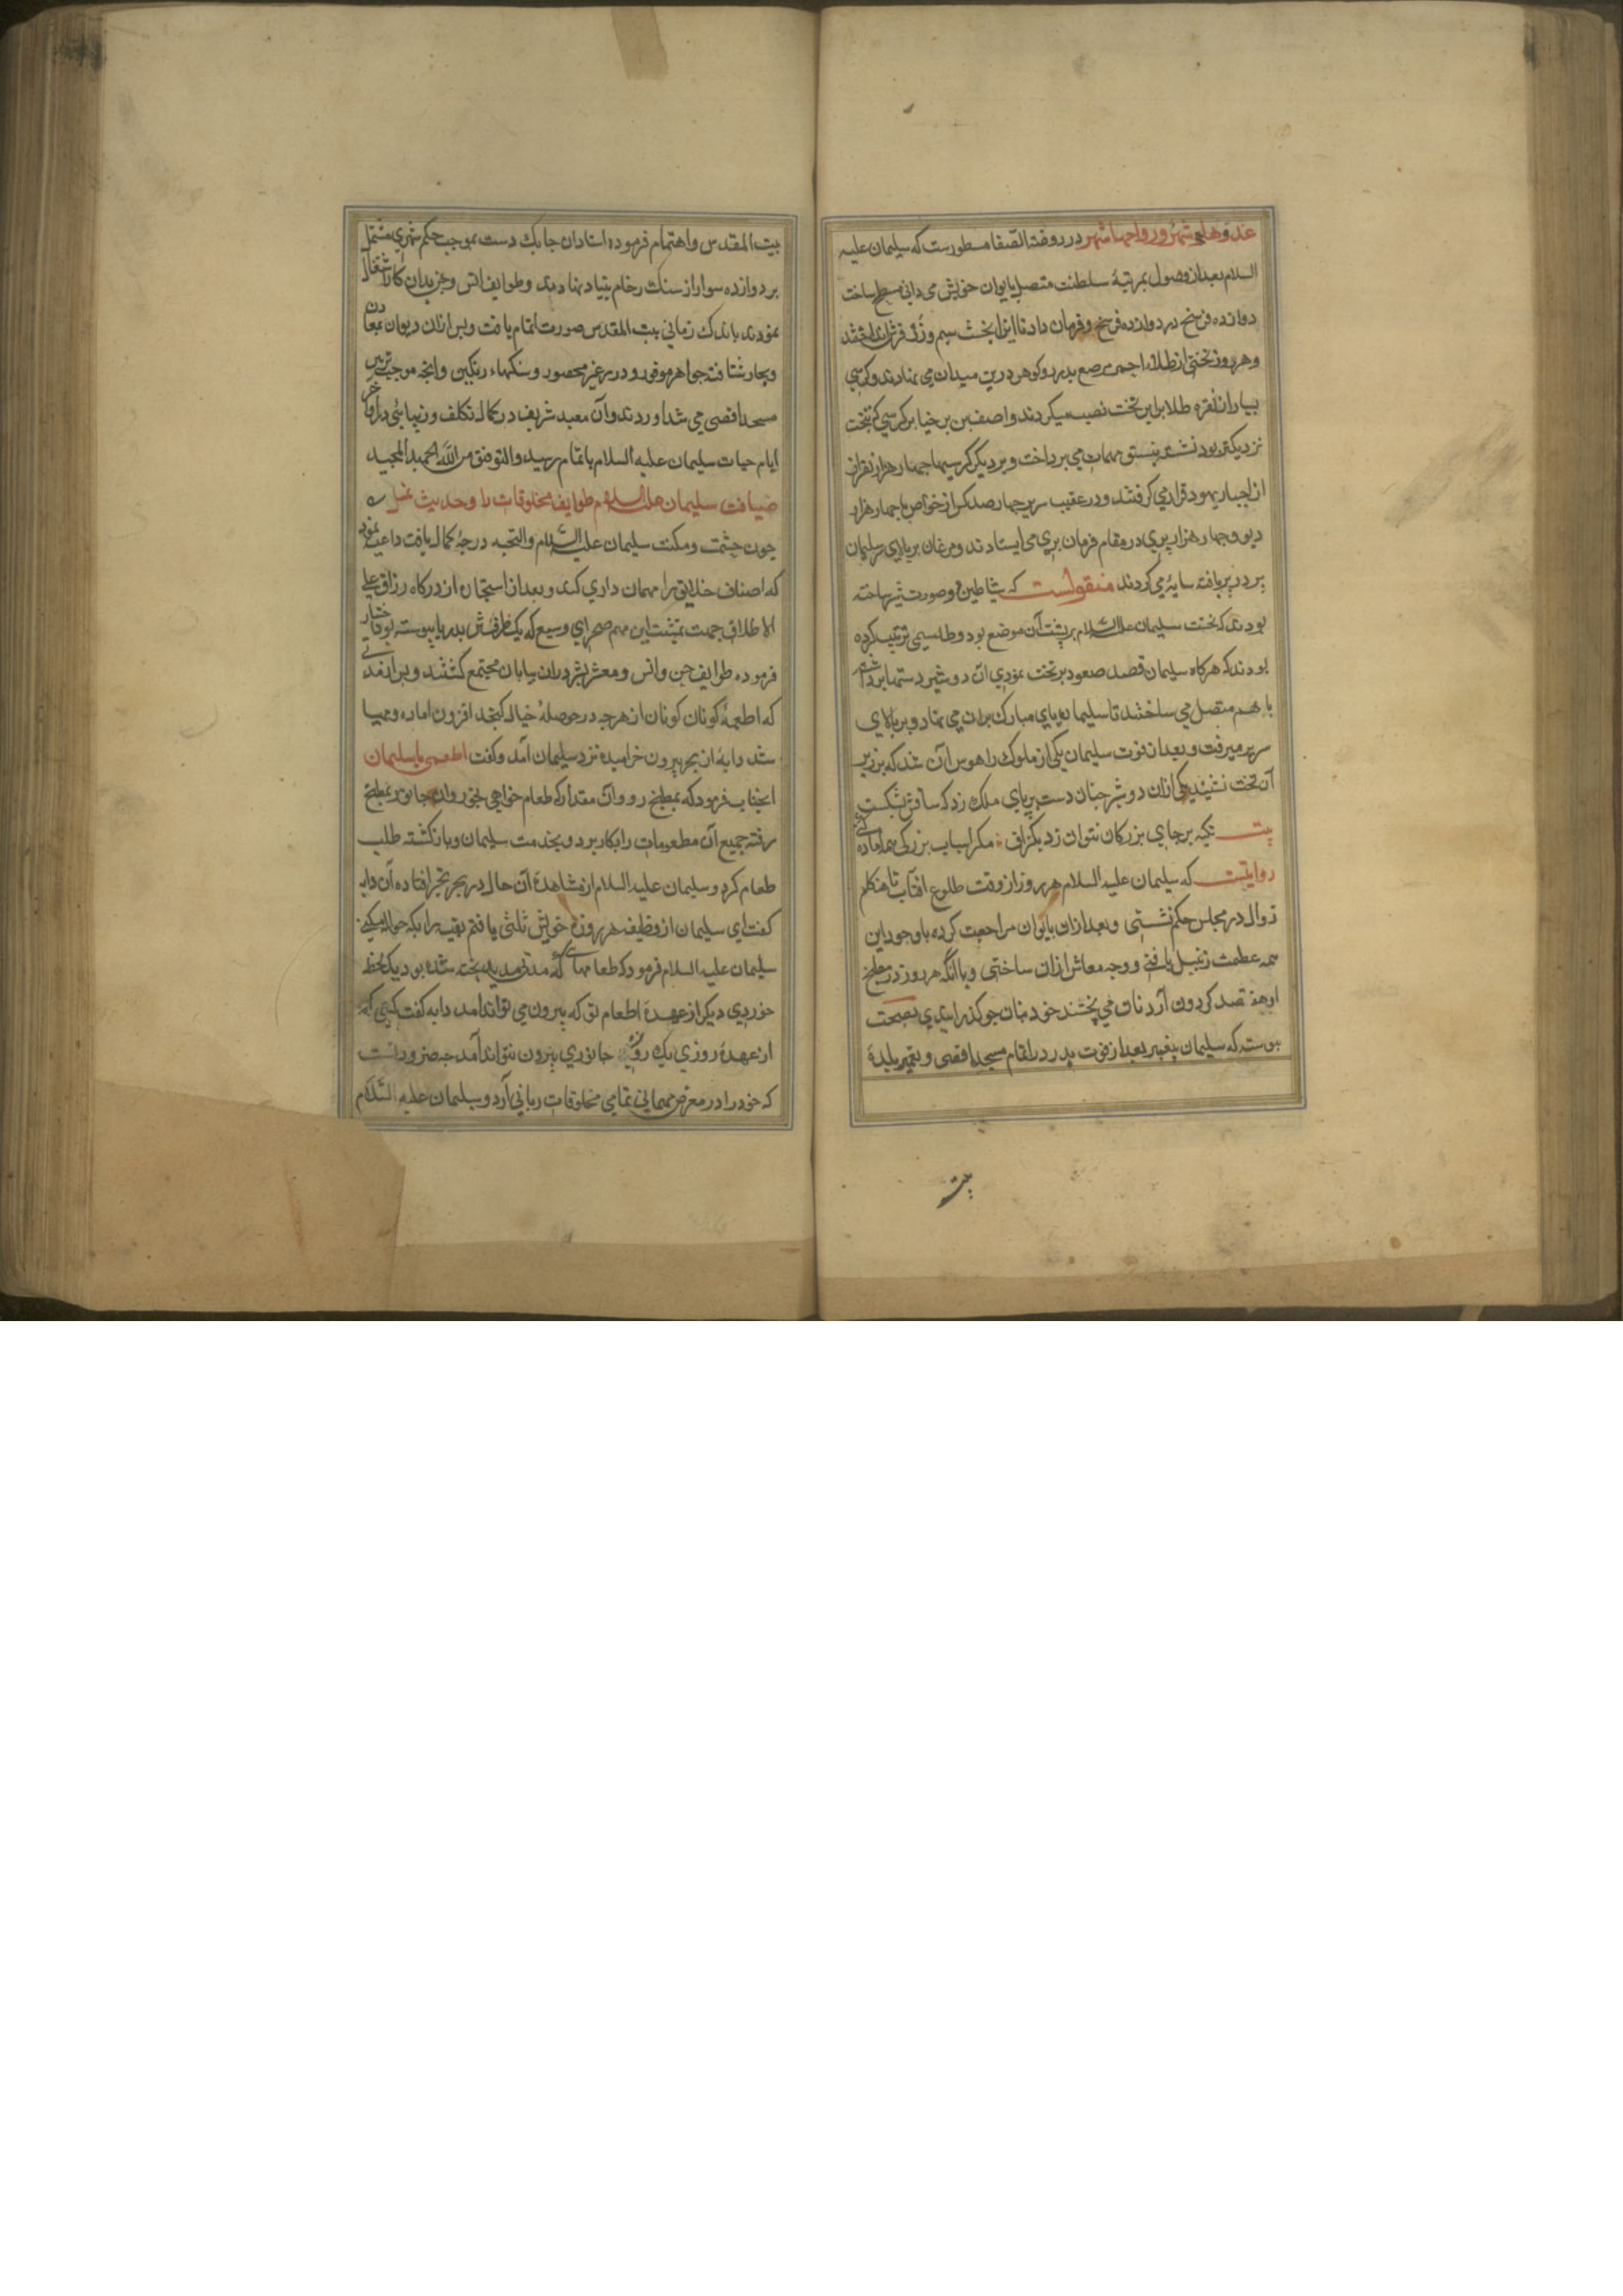 غدوها شهر ورواحها شهر در روضة الصفا مسطورست که سلیمان علیه
السلام بعد از وصول بمرتبهٔ سلطنت متصل بایوان خویش میدانی مسطح ساخت
دوازده فرسخ در دوازده فرسخ و فرمان داد تا انرا بخشت سیم و زر فرش انداختند
و هر روز تختی از طلاء احمر مرصع بدر و کوهر درین میدان می نهادند و کرسی
بسیار از نقره و طلا برابر تخت نصب میکردند و اصف بن برخیا بر کرسی که بتخت
نزدیکتر بود نشسته بنسق مهمات می پرداخت و بر دیکر کرسیها چهار هزار نفر از
احبار یهود قرار می کرفتند و در عقب سریر چهار صد کس از خواص با چهار هزار
دیو و چهار هزار پری در مقام فرمان بری می ایستادند و مرغان بر بالای سر سلیمان
پر در پر بافته سایه می کردند منقولست که شیاطین دو صورت شیر ساخته
بودند که تخت سلیمان علیه السلام بر پشت آن موضع بود و طلسمی ترتیب کرده
بودند که هرکاه سلیمان قصد صعود بر تخت نمودی آن دو شیر دستها برداشته
با هم متصل می ساختند تا سلیمان پای مبارک بران می نهاد و بر بالای
سریر میرفت و بعد از فوت سلیمان یکی از ملوک را هوس آن شد که بر زبر
آن تخت نشیند یکی از ان دو شیر چنان دست بر پای ملک زد که ساقش بشکست
بیت تکیه بر جای بزرکان نتوان زد بکزاف مکر اسباب بزرکی همه آماده کنی
روایتست که سلیمان علیه السلام هر روز از وقت طلوع افتاب تا هنکام
زوال در مجلس حکم نشستی و بعد ازان بایوان مراجعت کرده با وجود این
همه عظمت زنبیل بافتی و وجه معاش ازان ساختی و با انکه هر روز در مطبخ
او هفتصد کردون آرد نان می پختند خود بنان جو کذرانیدی بصحت
پیوسته که سلیمان پیغمبر بعد از فوت پدر در اتمام مسجد اقصی و تعمیر بلدهٔ
بیت
بیت المقدس واهتمام فرموده استادان جابک دست بموجب حکم شهری مشتمل
بر دوازده سوار از سنک رخام بنیاد نهادند و طوایف انس و جن بدان کار اشتغال
نمودند باندک زمانی بیت المقدس صورت اتمام یافت و پس ازان دیوان بمعادن
و بحار شتافته جواهر موفور و درر غیر محصور و سنکهاء رنکین و انچه موجب تزیین
مسجد اقصی می شد اوردند و آن معبد شریف در کمال تکلف و زیبائی در اواخر
ایام حیات سلیمان علیه السلام باتمام رسید و التوفیق من الله الحمید المجید
ضیافت سلیمان علیه السلام طوایف مخلوقات را و حدیث نمل
چون حشمت و مکنت سلیمان علیه السلام والتحیه درجهٔ کمال یافت داعیه نمود
که اصناف خلایق را مهمان داری کند و بعد از استجازه از درکاه رزاق علی
الاطلاق جهت تمشیت این مهم صحرای وسیع که یک طرفش بدریا پیوسته بود اختیار
فرموده طوایف جن و انس و معشر بشر دران بیابان مجتمع کشتند و بر
که اطعمهٔ کونان کونان از هرچه در حوصلهٔ خیال کنجد افزون اماده و مهیا
شد دابهٔ از بحر بیرون خرامیده نزد سلیمان آمد و کفت اطعمنی یا سلیمان
انجناب فرمود که بمطبخ رو و ان مقدار که طعام خواهی بخور و ان جانور بمطبخ
رفته جمیع آن مطعومات را بکار برد و بخدمت سلیمان باز کشته طلب
طعام کرد و سلیمان علیه السلام از مشاهدهٔ آن حال در بحر تحیر افتاده آن دابه
کفت ای سلیمان از وظیفه هر روزهٔ خویش ثلثی یافتم بقیه را بکه حواله میکنی
سلیمان علیه السلام فرمود که طعامهای که مدتی مدید پخته شده بود بیک لحظه
خوردی دیکر از عهدهٔ اطعام تو که بیرون می تواند امد دابه کفت کسی که
از عهدهٔ روزی یک روزه جانوری بیرون نتواند آمد چه ضرورتست
که خود را در معرض مهمانی تمامی مخلوقات ربانی آرد و سلیمان علیه السلام